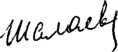 Шалаев